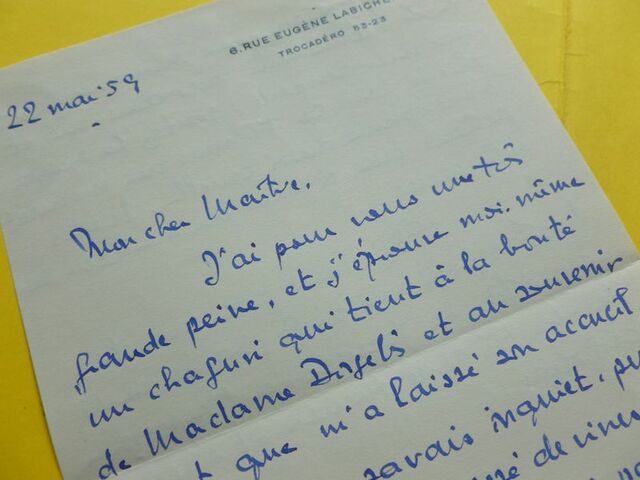 6, RUE EUGÈNE LABICHE
TROCADÉRO 53-23
22 mai 59
Mon cher Maître.
J'ai pour vous une très
grande peine, et j'éprouve moi-même
un chagrin qui tient à la bonté
de Madame et au souvenir
que m'a laissé son accueil
savais inquiet,
de